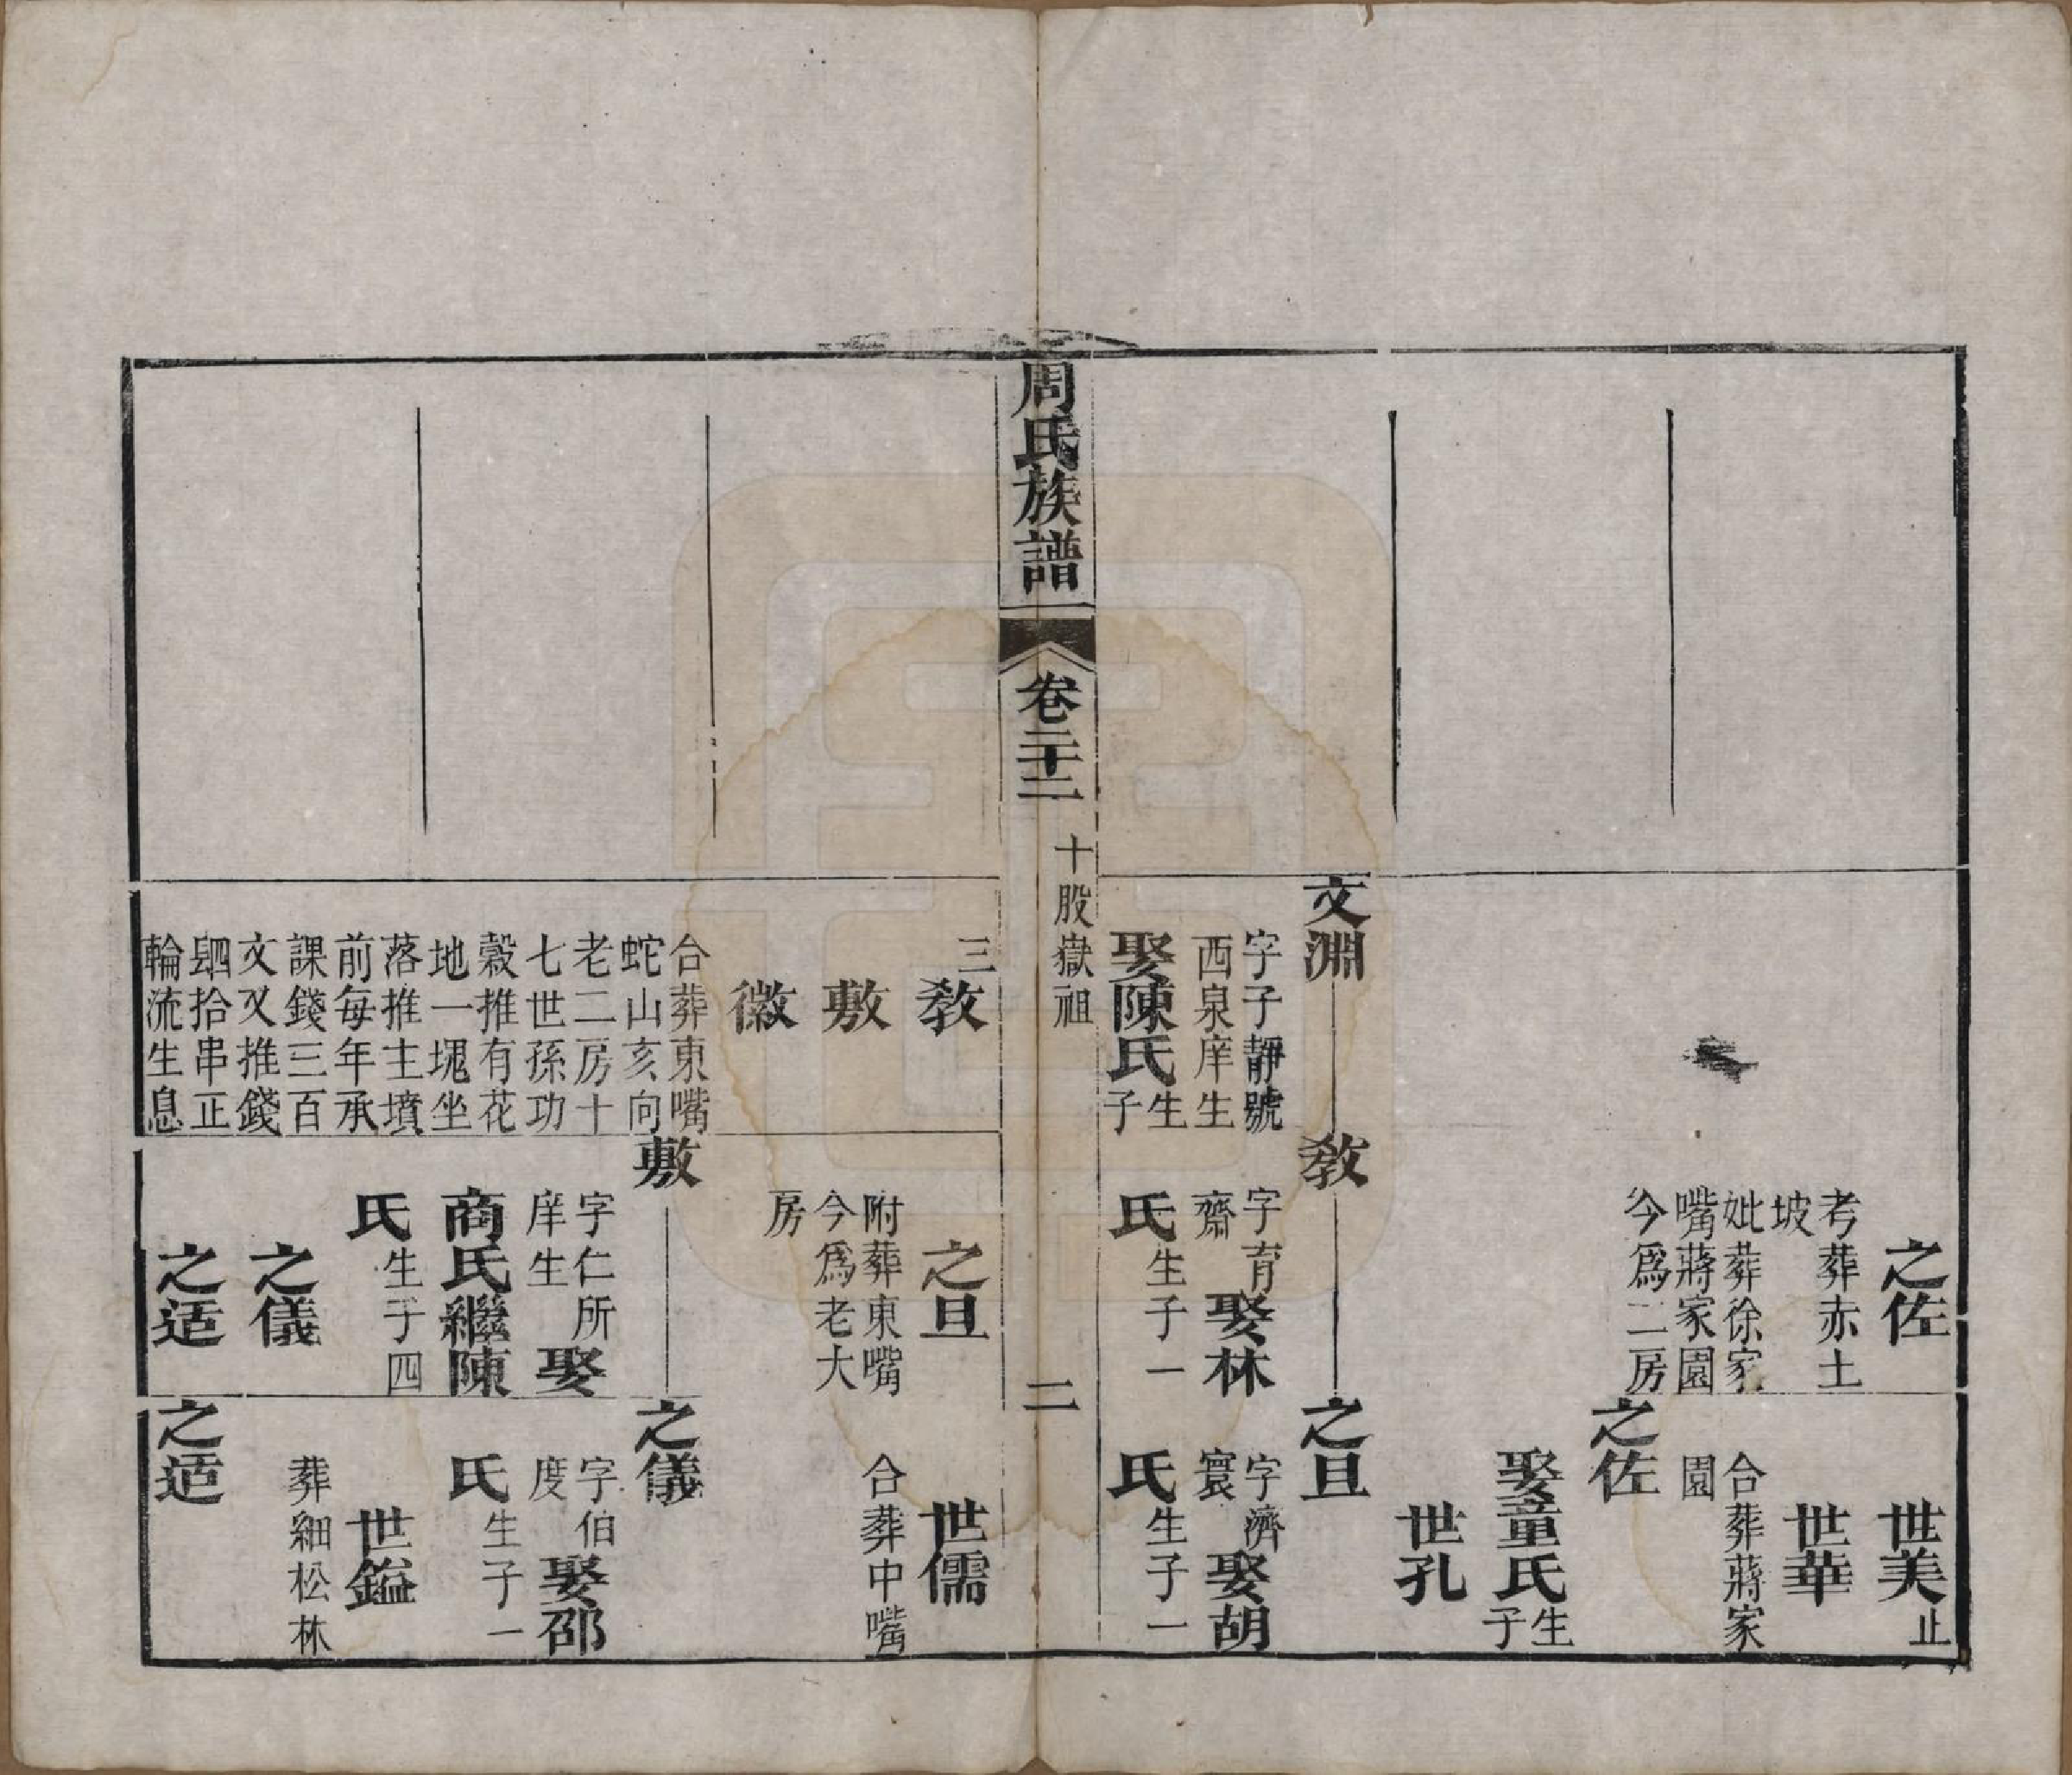 之佐
考葬赤土
坡
妣葬徐家
嘴蔣家園
今爲二房
世美止
世華
合葬蔣家
園
之佐
娶童氏生
子
世孔
文淵
字子靜號
西泉庠生
娶陳氏生
子
教
字育
齋
娶林
氏生子一
之旦
字濟
寰
娶胡
氏生子一
周氏族譜
卷二十二
十股嶽祖
二
三
教
敷
徽
之旦
附葬東嘴
今爲老大
房
世儒
合葬中嘴
合葬東嘴
蛇山亥向
老二房十
七世孫功
穀推有花
地一塊坐
落推主墳
前每年承
課錢三百
文又推錢
肆拾串正
輪流生息
敷
字仁所
庠生
娶
商氏繼陳
氏生子四
之儀
之适
之儀
字伯
度
娶邵
氏生子一
世鎰
葬細松林
之适